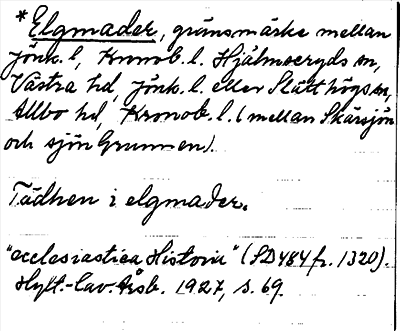 * Elgmader, gränsmärke mellan
Jönk. l, Kronob. l. Hjälmseryds sn,
Västra hd, Jönk. l. eller Slätthögs sn,
Allbo hd, Kronob. l. (mellan Skärsjön
och sjön Grunnen).
Tädhen i elgmader.
"ecclesiastica Historia" (SD 484 fr. 1320).
Hylt.-Cav. Årsb. 1927, s. 69.